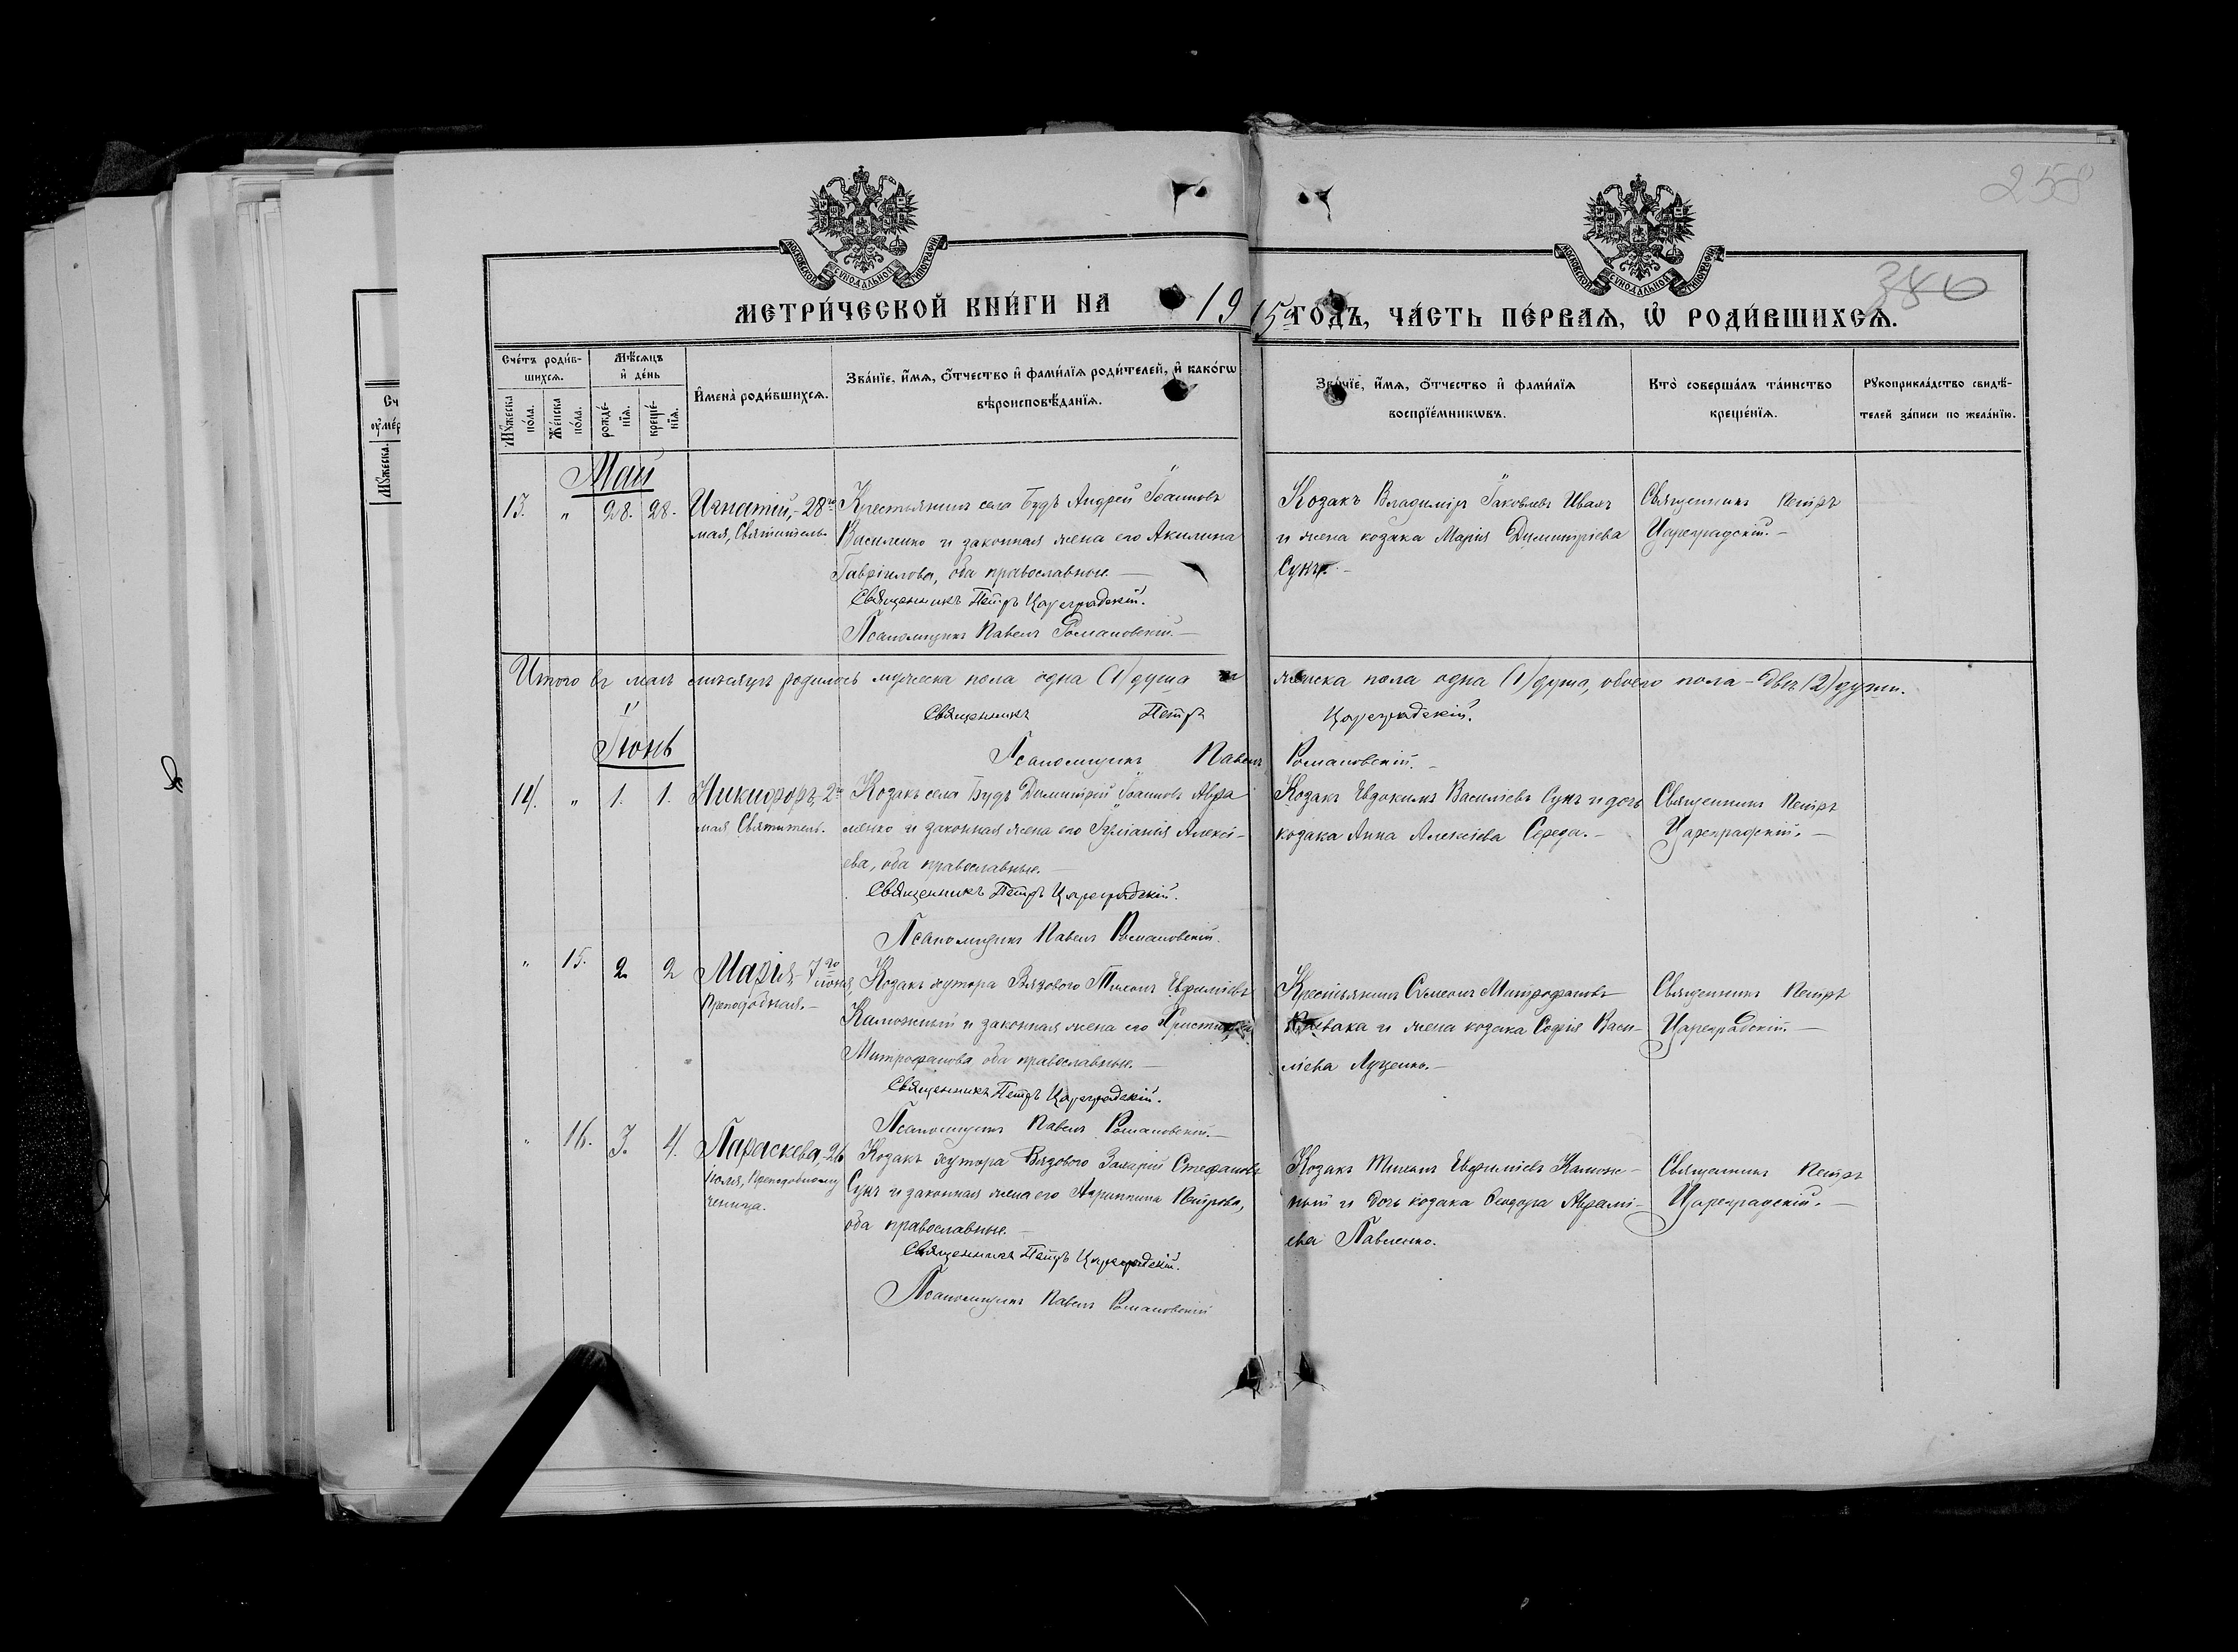 258
380
МОСКОВСКОЙ СУНОДАЛЬНОЙ ТИПОГРАФІИ
МОСКОВСКОЙ СУНОДАЛЬНОЙ ТИПОГРАФІИ
МЕТРИ́ЧЕСКОЙ КНИ́ГИ НА 1915 ГО́ДЪ, ЧА́СТЬ ПЕ́РВАѦ, Ѡ҆ РОДИ́ВШИХСѦ.
Сче́тъ роди́в-
шихсѧ.
Мꙋ́жеска по́ла.
Же́нска по́ла.
Мѣ́сѧцъ
и҆ де́нь
рожде́-
нїѧ.
креще́-
нїѧ.
И҆мена̀ роди́вшихсѧ.
Зва́нїе, и҆́мѧ, ѻ҆́тчество и҆ фами́лїѧ роди́телей, и҆ како́гѡ
вѣроисповѣ́данїѧ.
Зва́нїе, и҆́мѧ, ѻ҆́тчество и҆ фами́лїѧ
воспрїе́мникѡвъ.
Кто̀ соверша́лъ та́инство
креще́нїѧ.
Рꙋкоприкла́дство свидѣ́-
телей за́писи по жела́нїю.
Май
13. " 28. 28.
Игнатій,- 28го
мая, Святитель.
Крестьянинъ села Будъ Андрей Іоанновъ
Василенко и законная жена его Акилина
Гавріилова, оба православные. —
Священникъ Петръ Цареградскій.
Псаломщикъ Павелъ Романовскій. —
Козакъ Владиміръ Іаковлевъ Ивахъ
и жена козака Марія Димитріева
Сукъ. -
Священникъ Петръ
Цареградскій. —
Итого въ маѣ мѣсяцѣ родилось мужеска пола одна (1) душа и женска пола одна (1) душа, обоего пола - двѣ (2) души.
Священникъ Петръ Цареградскій.
Псаломщикъ Павелъ Романовскій. —
Іюнь
14. " 1. 1.
Никифоръ,- 2го
мая Святитель.
Козакъ села Будъ Димитрій Іоанновъ Авра
менко и законная жена его Іуліанія Алексі-
ева, оба православные. —
Священникъ Петръ Цареградскій.
Псаломщикъ Павелъ Романовскій.
Козакъ Евдокимъ Василіевъ Сукъ и дочь
козака Анна Алексіева Середа. —
Священникъ Петръ
Цареградскій. —
" 15. 2. 2
Марія,- 7го
іюня,
Преподобная. —
Козакъ хутора Вязового Тихонъ Евфиміевъ
Калюжный и законная жена его Христина
Митрофанова оба православные. —
Священникъ Петръ Цареградскій.
Псаломщикъ Павелъ Романовскій. —
Крестьянинъ Сѵмеонъ Митрофановъ
и жена козака Софія Васи-
ліева Луценко. —
Священникъ Петръ
Цареградскій. —
" 16. 3. 4.
Параскева,- 26
іюля, Преподобному
ченица.
Козакъ хутора Вязового Захарій Стефановъ
Сукъ и законная жена его Агриппина Петрова,
оба православные. —
Священникъ Петръ Цареградскій.
Псаломщикъ Павелъ Романовскій
Козакъ Тихонъ Евфиміевъ Калюж-
ный и дочь козака Ѳеодора Аврамі-
ева Павленко.
Священникъ Петръ
Цареградскій. —